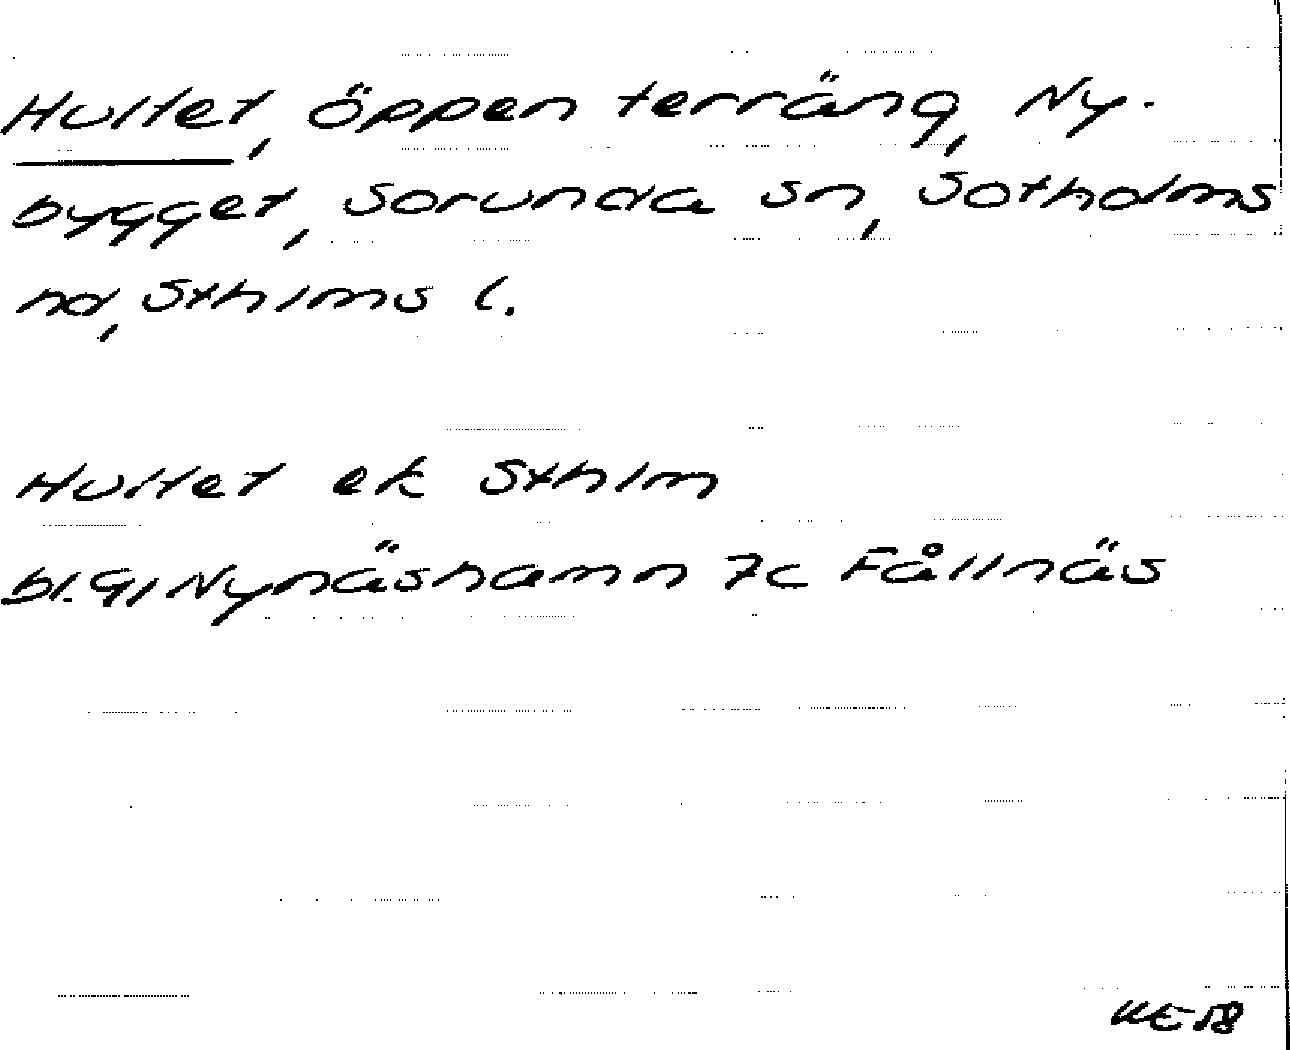 Hultet, öppen terräng, Ny-
bygget, Sorunda sn, Sotholms
hd, Sthlms l.
Hultet ek Sthlm
bl. 91 Nynäshamn 7c Fållnäs